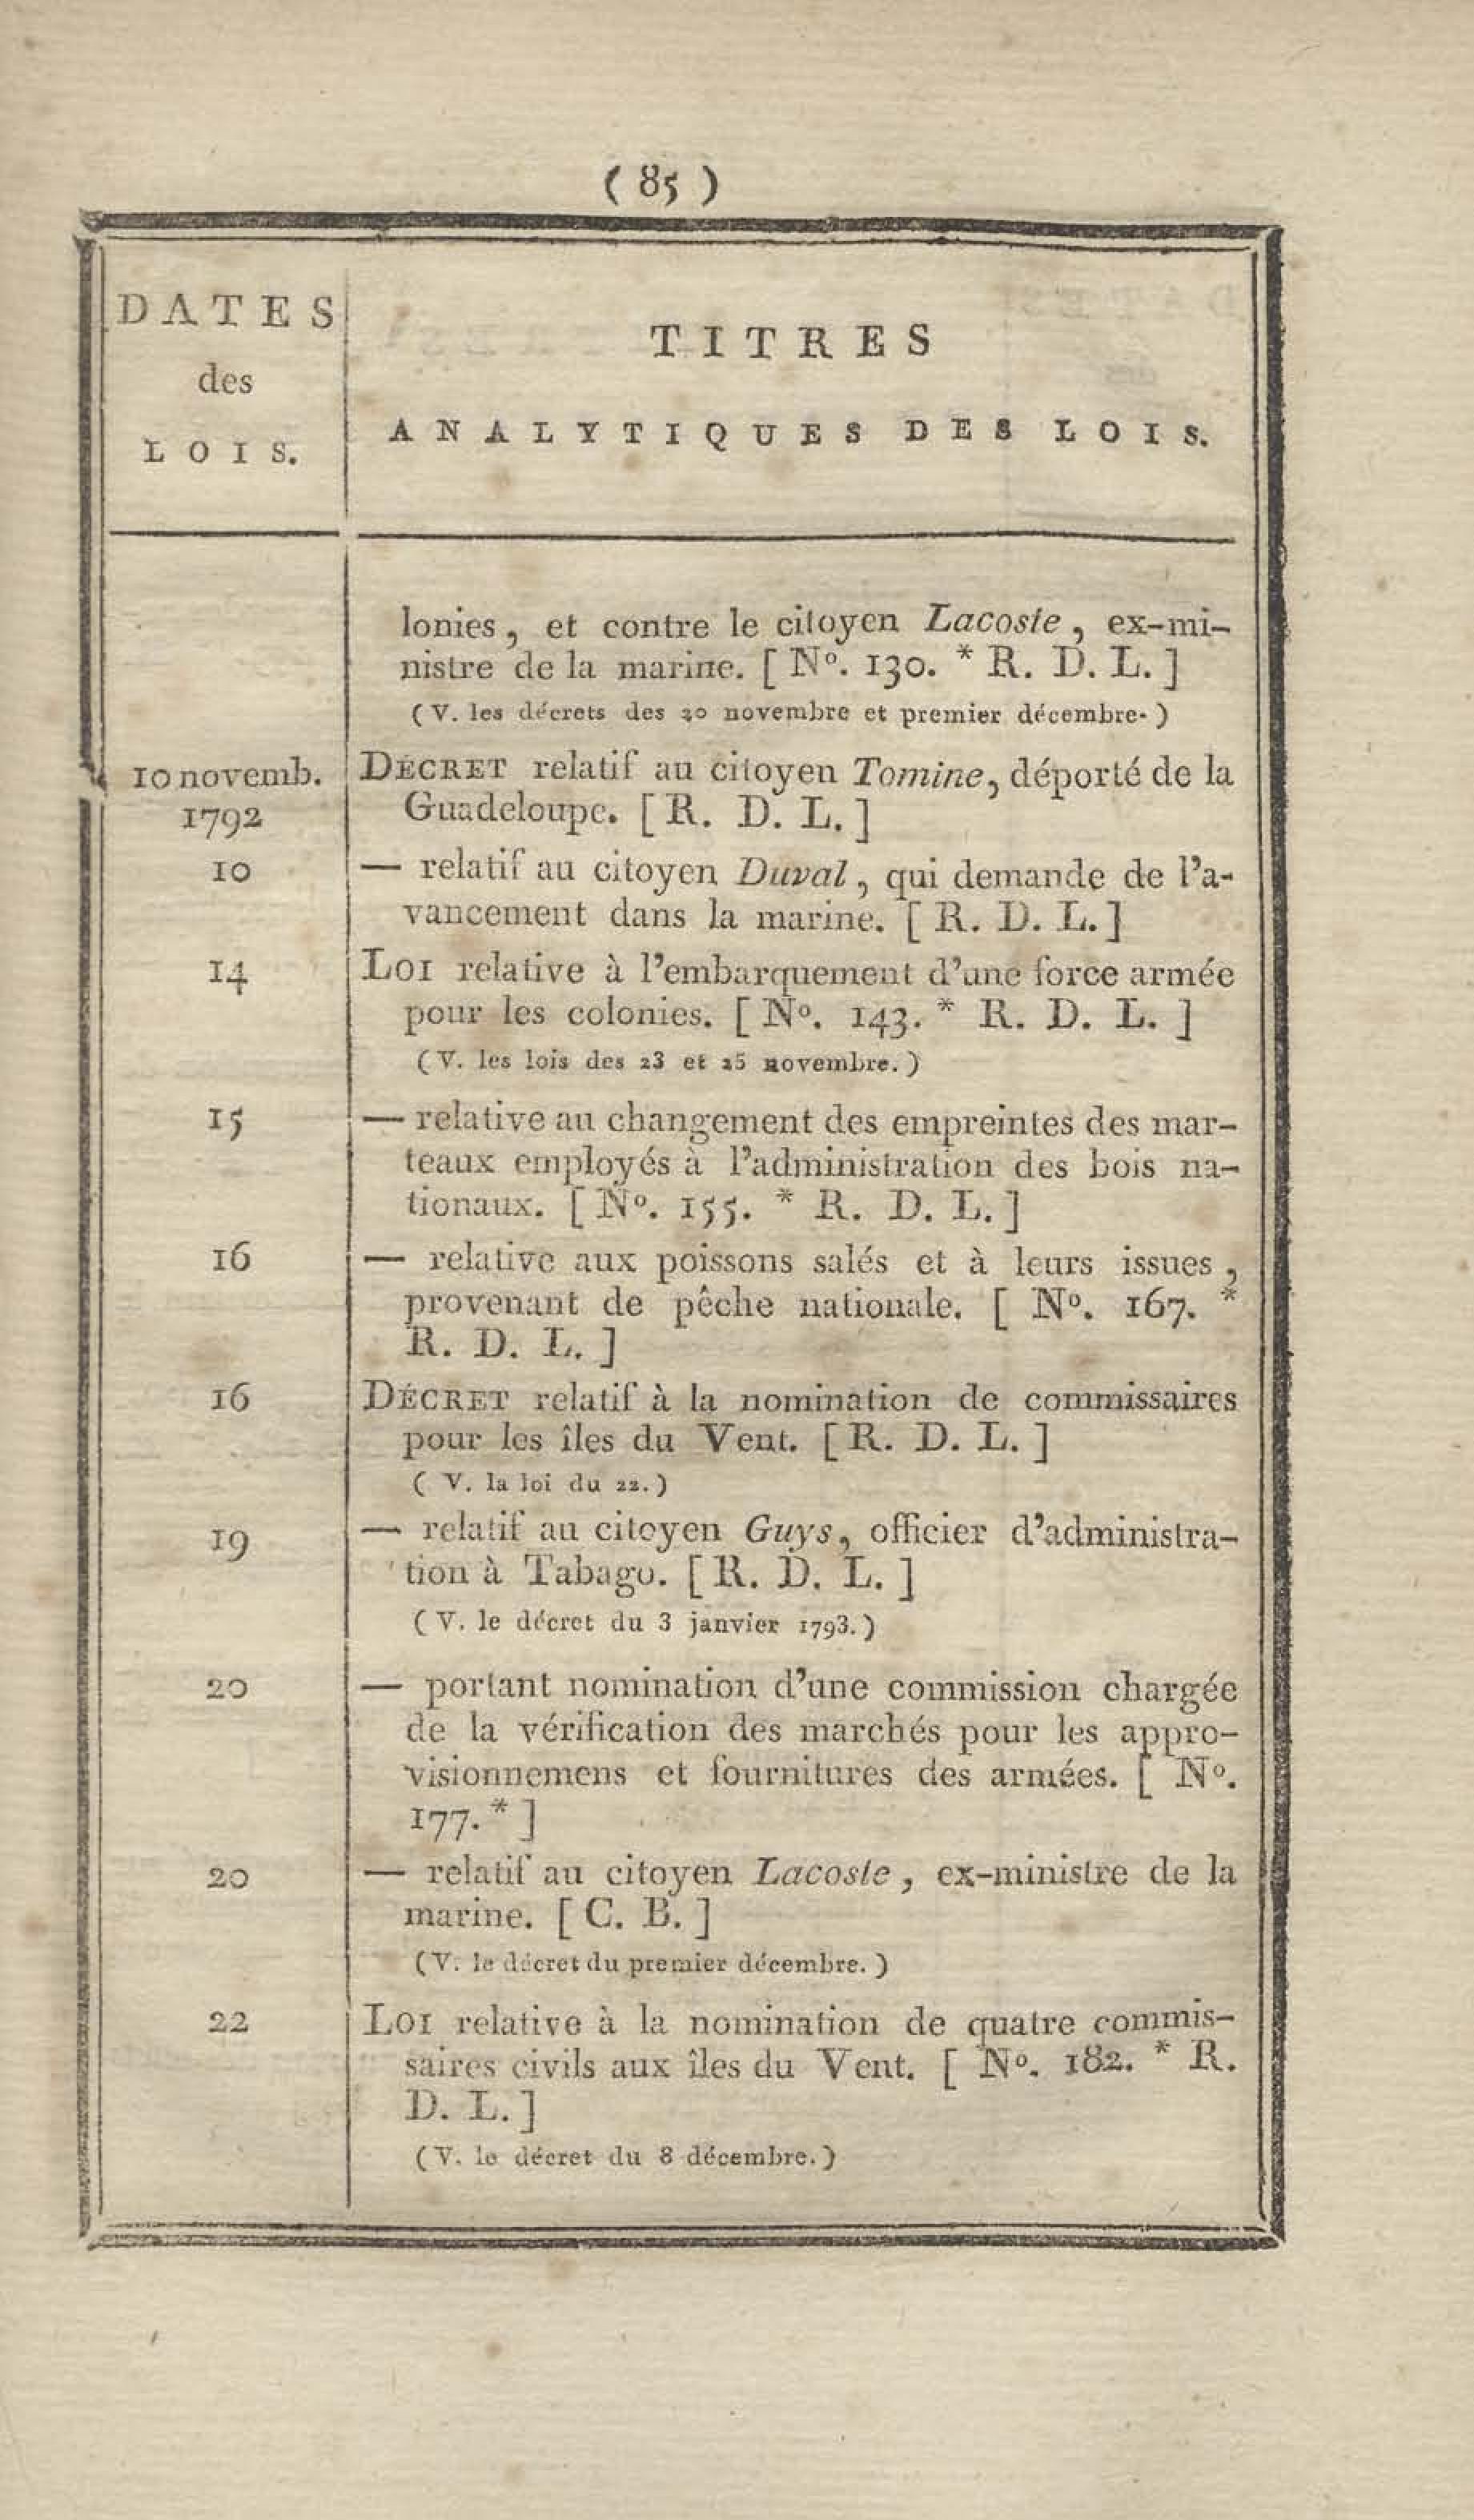 ( 85 )
DATES
des
LOIS.
TITRES
ANALYTIQUES DES LOIS.
lonies, et contre le citoyen Lacoste, ex-mi-
nistre de la marine. [ Nº. 130. * R. D. L. ]
( V. les décrets des 20 novembre et premier décembre. )
10 novemb.
1792
DÉCRET relatif au citoyen Tomine, déporté de la
Guadeloupe. [ R. D. L. ]
10
— relatif au citoyen Duval, qui demande de l'a-
vancement dans la marine. [ R. D. L. ]
14
LOI relative à l'embarquement d'une force armée
pour les colonies. [ Nº. 143. * R. D. L. ]
( V. les lois des 23 et 25 novembre. )
15
— relative au changement des empreintes des mar-
teaux employés à l'administration des bois na-
tionaux. [ Nº. 155. * R. D. L. ]
16
— relative aux poissons salés et à leurs issues,
provenant de pêche nationale. [ Nº. 167. *
R. D. L. ]
16
DÉCRET relatif à la nomination de commissaires
pour les îles du Vent. [ R. D. L. ]
( V. la loi du 22. )
19
— relatif au citoyen Guys, officier d'administra-
tion à Tabago. [ R. D. L. ]
( V. le décret du 3 janvier 1793. )
20
— portant nomination d'une commission chargée
de la vérification des marchés pour les appro-
visionnemens et fournitures des armées. [ Nº.
177. * ]
20
— relatif au citoyen Lacoste, ex-ministre de la
marine. [ C. B. ]
( V. le décret du premier décembre. )
22
LOI relative à la nomination de quatre commis-
saires civils aux îles du Vent. [ Nº. 182. * R.
D. L. ]
( V. le décret du 8 décembre. )